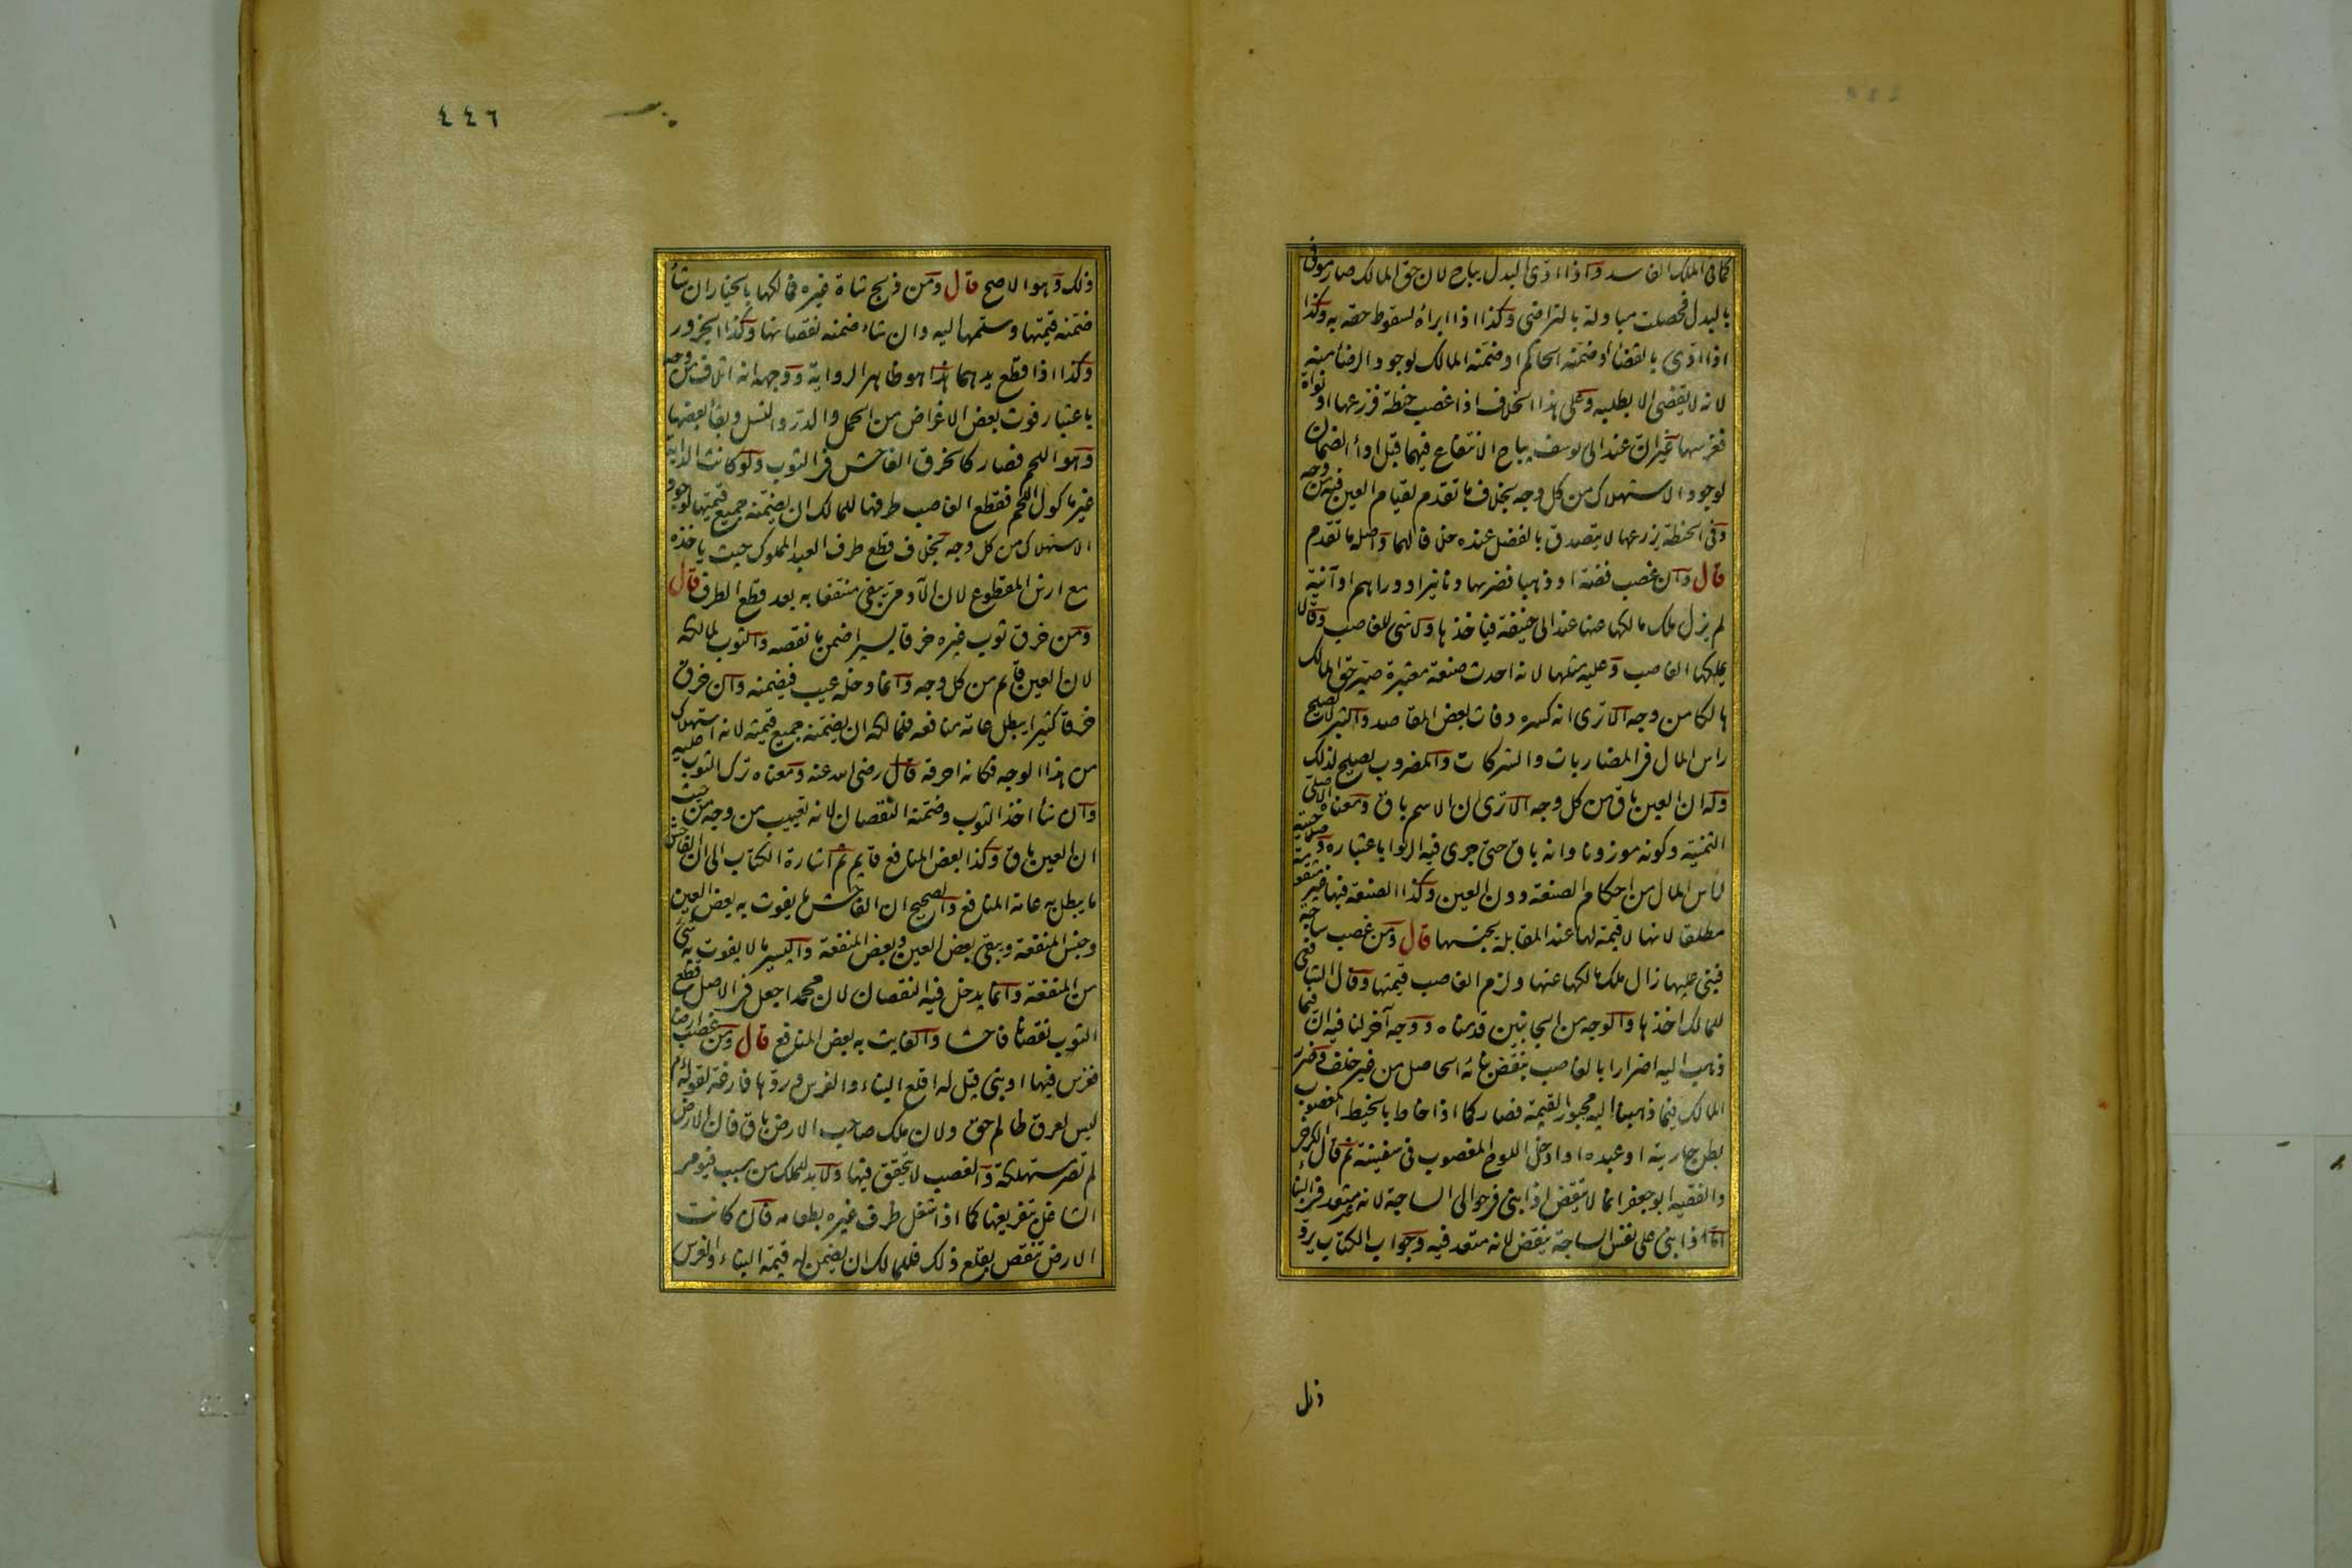 كما فى الملك الفاسد واذا ادى البدل يباح لان حق المالك صار موفى
بالبدل فحصلت مبادلة بالتراضى وكذا اذا ابرأه لسقوط حقه به وكذا
اذا ادى بالقضأ او ضمنه الحاكم او ضمنه المالك لوجود الرضأ منه
لانه لا يقضى الا بطلبه وعلى هذا الخلاف اذا غصب حنطة فزرعها او نواة
فغرسها غير ان عند ابى يوسف يباح الانتفاع فيهما قبل ادأ الضمان
لوجود الاستهلاك من كل وجه بخلاف ما تقدم لقيام العين فيه من وجه
وفى الحنطة يزرعها لا يتصدق بالفضل عنده خلافا لهما واصله ما تقدم
قال وان غصب فضة او ذهبا فضربها دنانير او دراهم او آنية
لم يزل ملك مالكها عنها عند ابى حنيفة فياخذها ولا شى للغاصب وقالا
يملكها الغاصب وعليه مثلها لانه احدث صنعة معتبرة صير حق المالك
هالكا من وجه الا ترى انه كسره وفات بعض المقاصد والتبر لا يصلح
راس المال فى المضاربات والشركات والمضروب يصلح لذلك
وله ان العين باق من كل وجه الا ترى ان الاسم باق ومعناه الاصلى
الثمنية وكونه موزونا وانه باق حتى جرى فيه الربوا باعتباره وصلاحيته
لرأس المال من احكام الصنعة دون العين وكذا الصنعة فيها غير متقومة
مطلقا لانها لا قيمة لها عند المقابلة بجنسها قال ومن غصب ساجة
فبنى عليها زال ملك مالكها عنها ولزم الغاصب قيمتها وقال الشافعى
للمالك اخذها والوجه من الجانبين قدمناه ووجه آخر لنا فيه ان فيما
ذهب اليه اضرارا بالغاصب بنقض بنائه الحاصل من غير خلف وضرر
المالك فيما ذهبنا اليه مجبور بالقيمة فصار كما اذا خاط بالخيط المغصوب
بطن جاريته او عبده او ادخل اللوح المغصوب فى سفينته ثم قال الكرخى
والفقيه ابو جعفر انما لا ينقض اذا بنى فى حوالى الساجة لانه غير متعد فى البنأ
اما اذا بنى على نفس الساجة ينقض لانه متعد فيه وجواب الكتاب يرد
ذلك
٤٤٦
ذلك وهو الاصح قال ومن ذبح شاة غيره فمالكها بالخيار ان شأ
ضمنه قيمتها وسلمها اليه وان شاء ضمنه نقصانها وكذا الجزور
وكذا اذا قطع يدهما هذا هو ظاهر الرواية ووجهه انه اتلاف من وجه
باعتبار فوت بعض الاغراض من الحمل والدر والنسل وبقأ بعضها
وهو اللحم فصار كالخرق الفاحش فى الثوب ولو كانت الدابة
غير ماكول اللحم فقطع الغاصب طرفها للمالك ان يضمنه جميع قيمتها لوجود
الاستهلاك من كل وجه بخلاف قطع طرف العبد المملوك حيث ياخذه
مع ارش المقطوع لان الآدمى يبقى منتفعا به بعد قطع الطرف قال
ومن خرق ثوب غيره خرقا يسيرا ضمن ما نقصه والثوب لمالكه
لان العين قايم من كل وجه وانما دخله عيب فيضمنه وان خرق
خرقا كثيرا يبطل عامة منافعه فلمالكه ان يضمنه جميع قيمته لانه استهلاك
من هذا الوجه فكانه احرقه قال رضى الله عنه ومعناه ترك الثوب عليه
وان شأ اخذ الثوب وضمنه النقصان لانه تعييب من وجه من حيث
ان العين باق وكذا بعض المنافع قايم ثم اشارة الكتاب الى ان الفاحش
ما يبطل به عامة المنافع والصحيح ان الفاحش ما يفوت به بعض العين
وجنس المنفعة ويبقى بعض العين وبعض المنفعة واليسير ما لا يفوت به شى
من المنفعة وانما يدخل فيه النقصان لان محمدا جعل فى الاصل قطع
الثوب نقصانا فاحشا والفايت به بعض المنافع قال ومن غصب ارضا
فغرس فيها او بنى قيل له اقلع البناء والغرس وردها فارغة لقوله عم
ليس لعرق ظالم حق ولان ملك صاحب الارض باق فان الارض
لم تصر مستهلكة والغصب لا يتحقق فيها ولا بد للملك من سبب فيومر
الشاغل بتفريغها كما اذا شغل ظرف غيره بطعامه فان كانت
الارض تنقص بقلع ذلك فللمالك ان يضمن له قيمة البناء والغرس